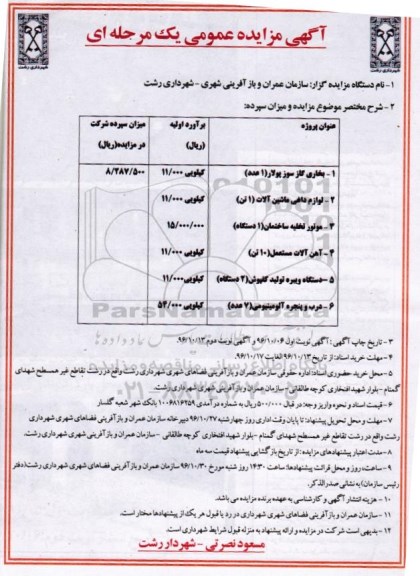 آگهی مزایده عمومی یک مرحله ای
شهرداری رشت
شهرداری رشت
۱- نام دستگاه مزایده گزار: سازمان عمران و باز آفرینی شهری - شهرداری رشت
۲- شرح مختصر موضوع مزایده و میزان سپرده:
عنوان پروژه
برآورد اولیه (ریال)
میزان سپرده شرکت در مزایده(ریال)
۱- بخاری گاز سوز پولار(۱ عدد) کیلویی ۱۱/۰۰۰ ۸/۲۸۷/۵۰۰
۲- لوازم داغی ماشین آلات (۱ تن) کیلویی ۱۱/۰۰۰
۳- موتور تخلیه ساختمان(۱ دستگاه) ۱۵/۰۰۰/۰۰۰
۴- آهن آلات مستعمل(۱۰ تن) کیلویی ۱۱/۰۰۰
۵- دستگاه ویبره تولید کفپوش(۲ دستگاه) کیلویی ۱۱/۰۰۰
۶- درب و پنجره آلومینیومی(۷ عدد) کیلویی ۵۴/۰۰۰
ParsNamadData
۳- تاریخ چاپ آگهی: آگهی نوبت اول ۹۶/۱۰/۰۶ و آگهی نوبت دوم ۹۶/۱۰/۱۳
۴- مهلت خرید اسناد: از تاریخ ۹۶/۱۰/۱۳ لغایت ۹۶/۱۰/۱۷
۵- محل خرید حضوری اسناد: اداره حقوقی سازمان عمران و باز آفرینی فضاهای شهری شهرداری رشت واقع در رشت تقاطع غیر همسطح شهدای
گمنام - بلوار شهید افتخاری کوچه طالقانی - سازمان عمران و باز آفرینی شهری شهرداری رشت.
۶- قیمت اسناد و نحوه واریز وجه: در قبال ۵۰۰/۰۰۰ ریال به شماره درآمدی ۱۰۰۶۸۱۶۲۵۹ بانک شهر شعبه گلسار
۷- مهلت و محل تحویل پیشنهاد: تا پایان وقت اداری روز چهارشنبه ۹۶/۱۰/۲۷ دبیرخانه سازمان عمران و باز آفرینی فضاهای شهری شهرداری
رشت واقع در رشت تقاطع غیر همسطح شهدای گمنام - بلوار شهید افتخاری کوچه طالقانی - سازمان عمران و باز آفرینی شهری شهرداری رشت.
۸- مدت اعتبار پیشنهادهای مزایده: از تاریخ بازگشایی پیشنهاد قیمت سه ماه
۹- ساعت، روز و محل قرائت پیشنهادها: ساعت ۱۴:۳۰ روز شنبه مورخ ۹۶/۱۰/۳۰ سازمان عمران و باز آفرینی فضاهای شهری شهرداری رشت(دفتر
رئیس سازمان) به نشانی صدرالذکر.
۱۰- هزینه انتشار آگهی و کارشناسی به عهده برنده مزایده می باشد.
۱۱- سازمان عمران و باز آفرینی فضاهای شهری شهرداری رشت در رد یا قبول هر یک از پیشنهادها مختار است.
۱۲- بدیهی است شرکت در مزایده و ارائه پیشنهاد به منزله قبول شرایط شهرداری است.
مسعود نصرتی - شهردار رشت